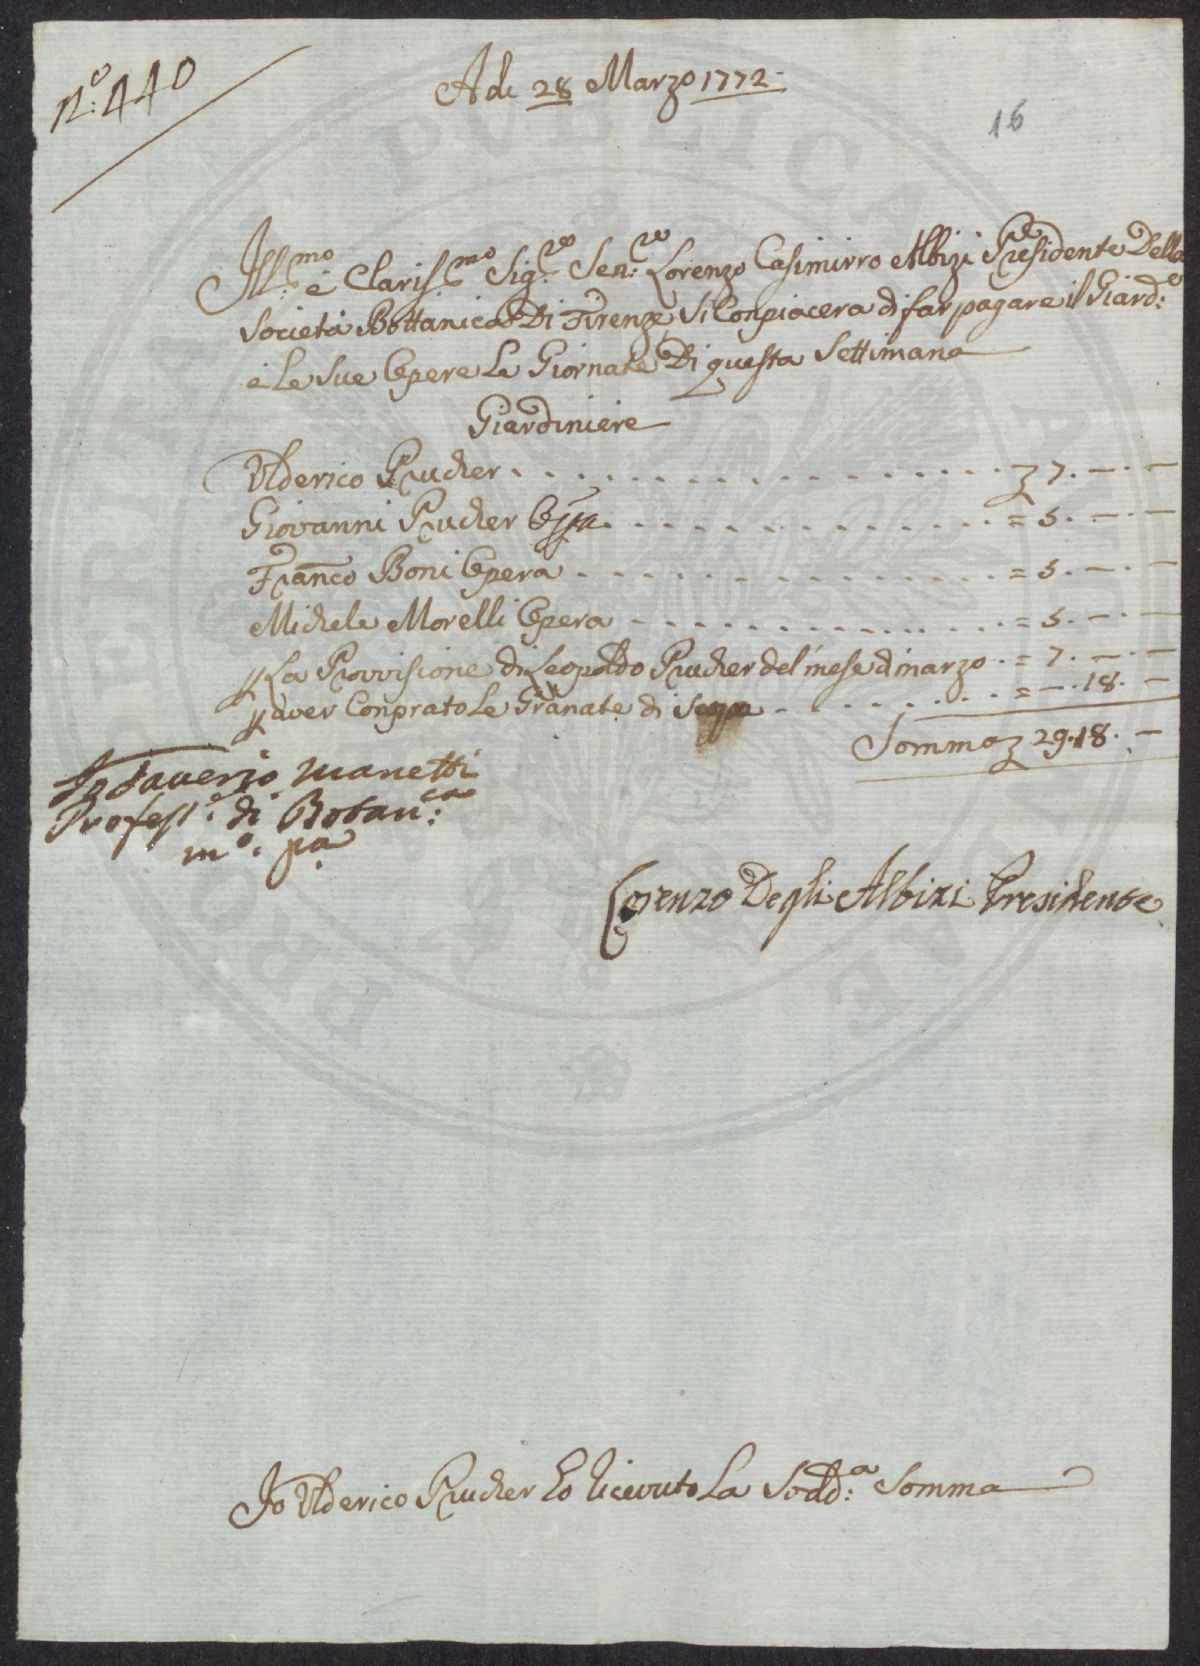 N.o 440
A di 28 Marzo 1772
16
Ill:mo è Claris:mo Sig:re Sen:re Lorenzo Casimirro Albizi Presidente Della
Società Bottanica Di Firenze Si Conpiacera di far pagare il Giard:e
e Le Sue Opere Le Giornate Di questa Settimana
Giardiniere
Ulderico Prucher . . . . . . . . . . . . . . . . 7. — . —
Giovanni Prucher Opra . . . . . . . . . . . . = 5. — . —
Franco Boni Opera . . . . . . . . . . . . . . = 5. — . —
Michele Morelli Opera . . . . . . . . . . . . = 5. — . —
p La Provisione di Leopoldo Prucher del mese di marzo . = 7. — . —
p aver Conprato Le Granate di Scopa . . . . . . . = — . 18. —
Somma 29.18. —
Io Saverio Manetti
Profess.e di Botan:ca
m.o pa
Lorenzo Degli Albizi Presidente
Io Ulderico Prucher ho ricevuto La Sodd:a Somma
PUBLICA